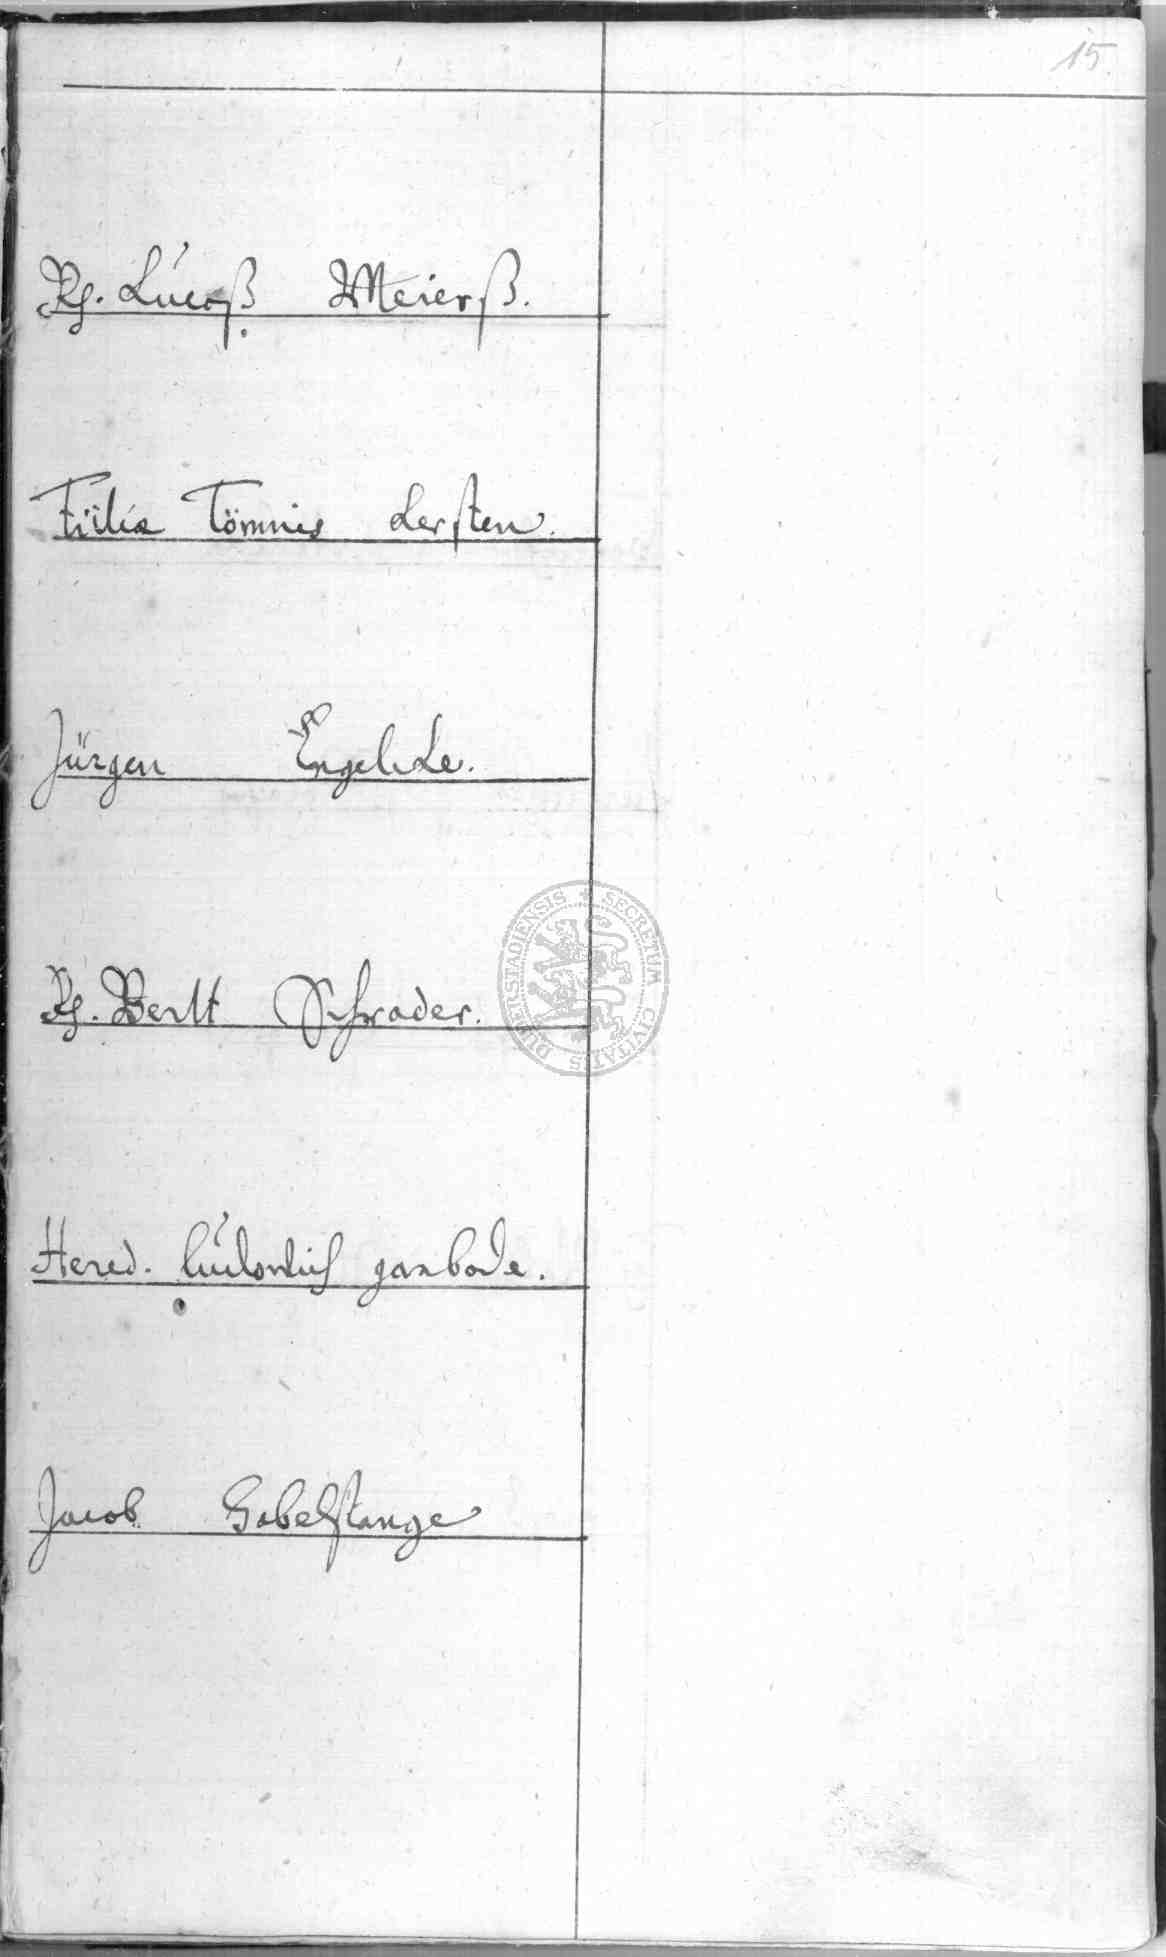 15.
Rh. Lucaß Meierß.
Filia Tömnis Kersten.
Jürgen Engelke.
Rh. Berlt Schrader.
Hered.
Jacob Gobelstange
SECRETUM CIVITATIS DUDERSTADIENSIS